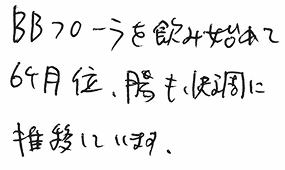 BBフローラを飲み始めて
6ケ月位、腸も快調に
推移しています。